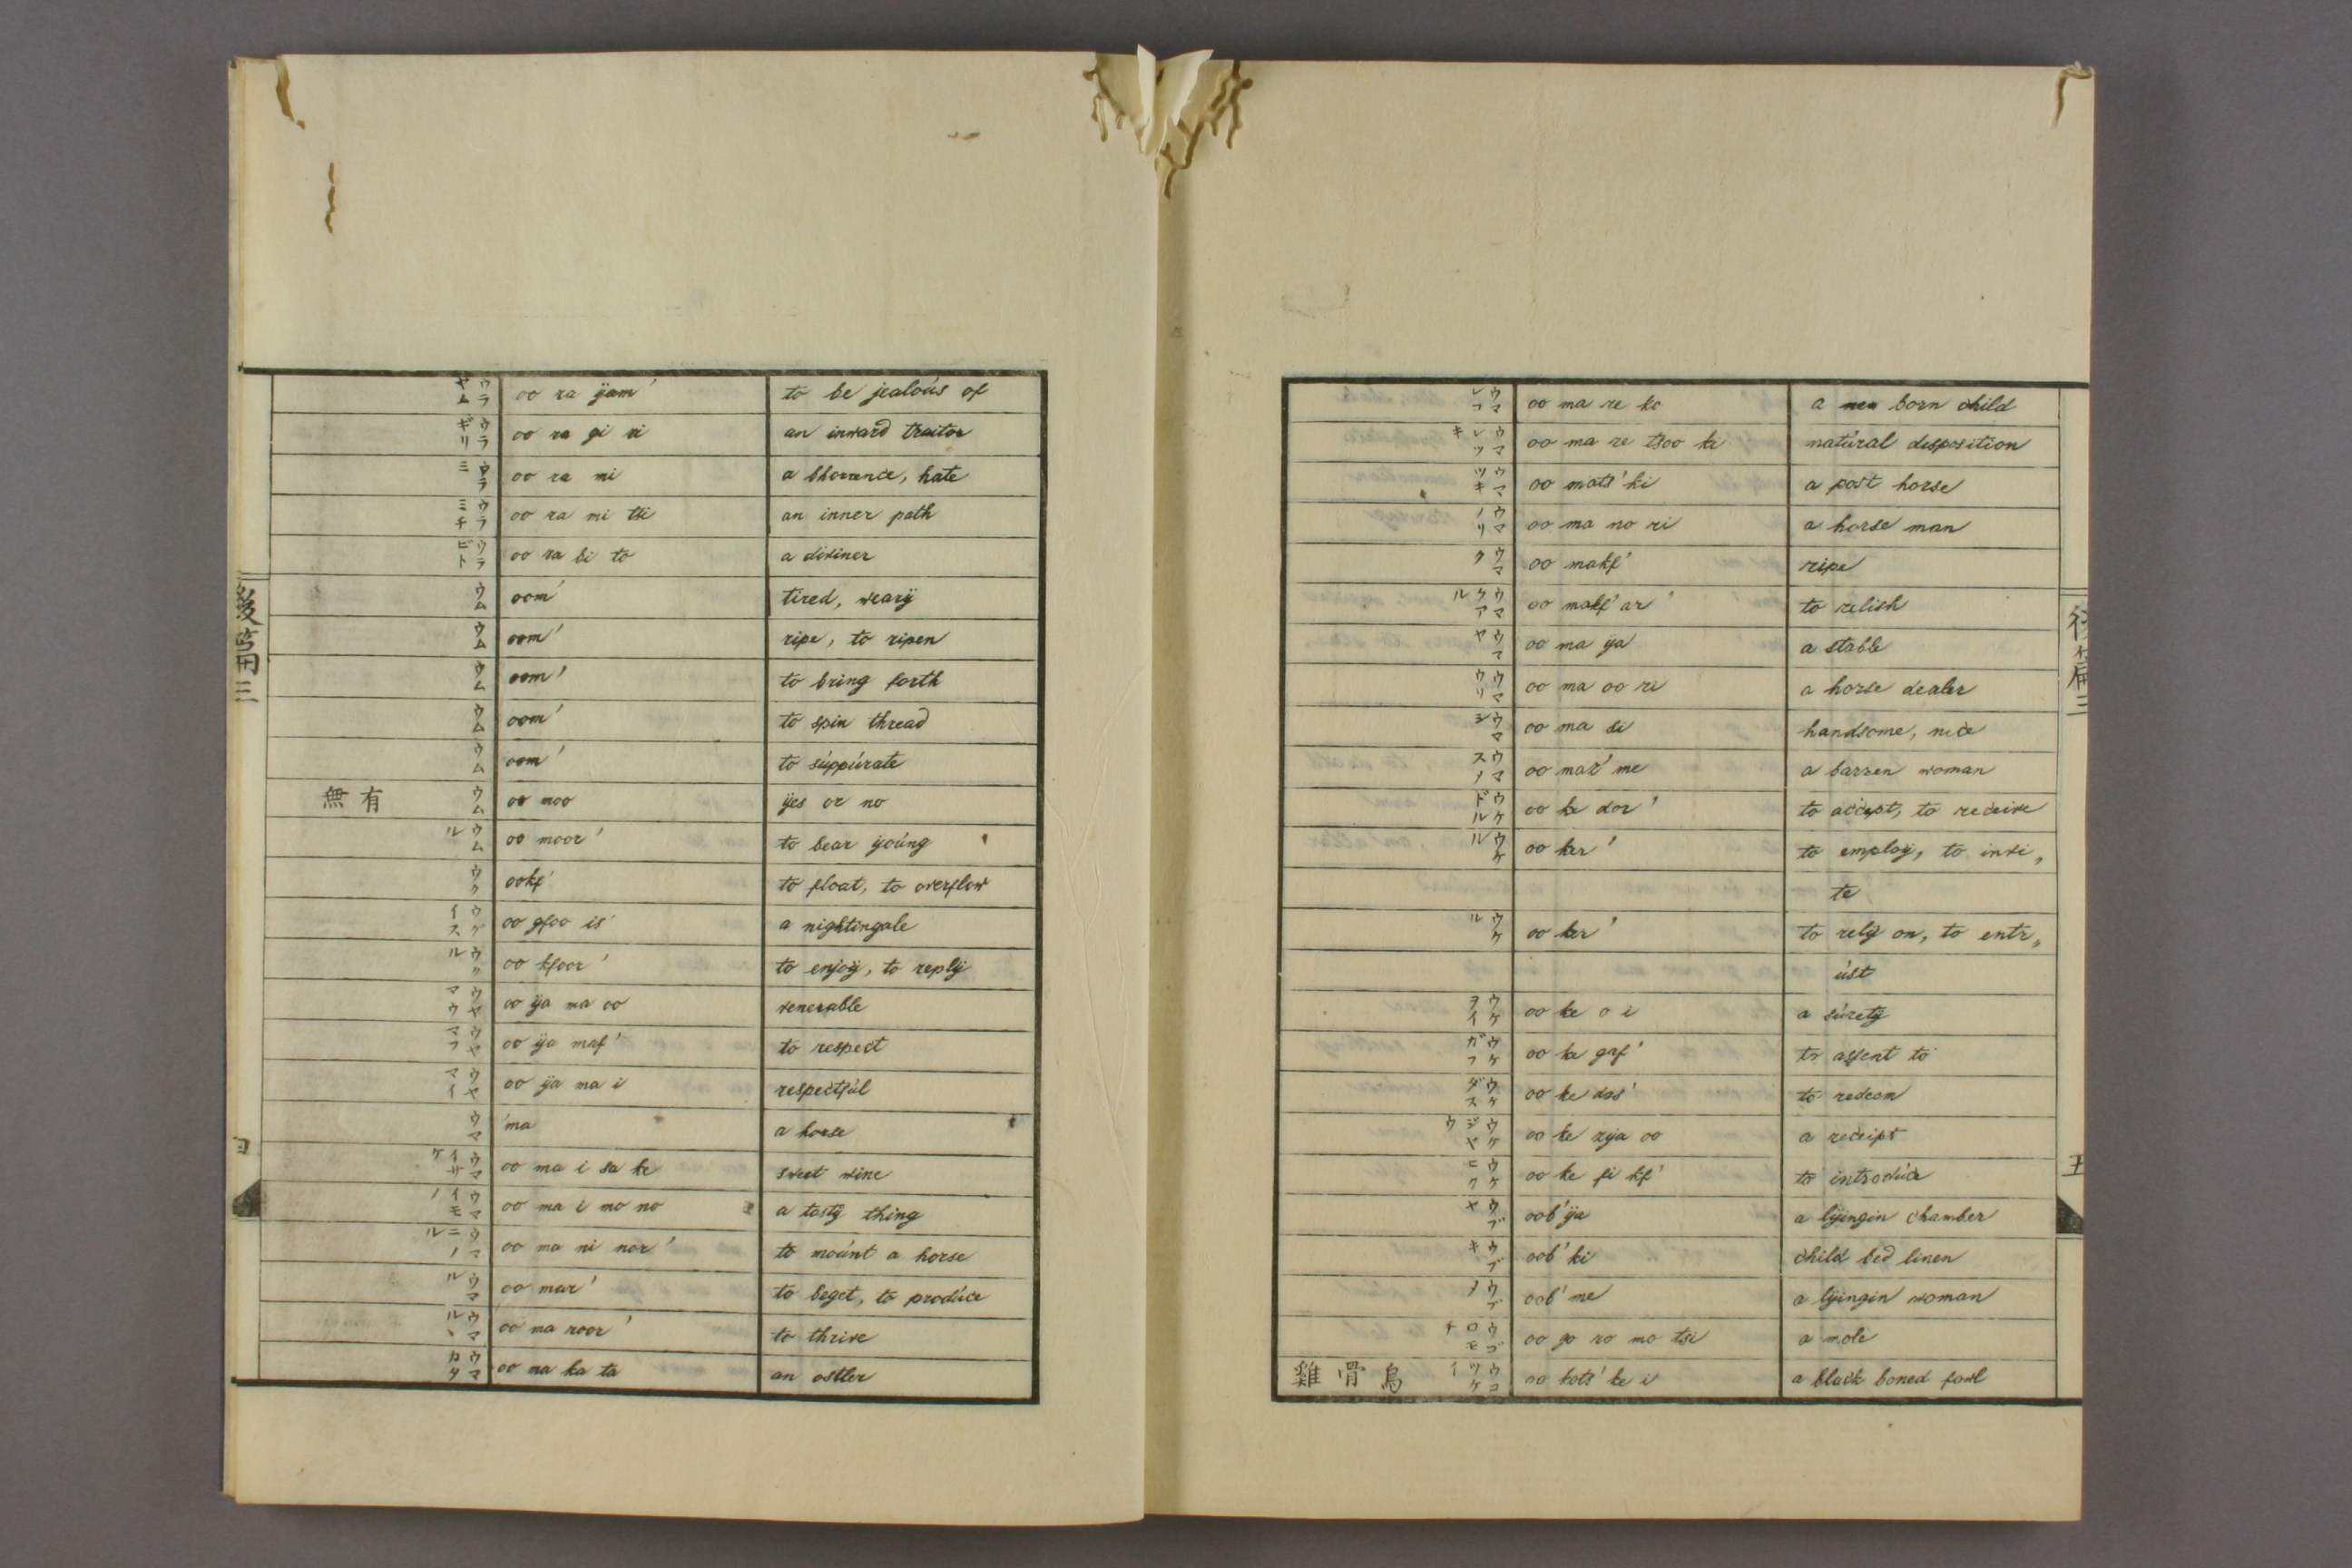 ウラヤム oo ra ÿam' to be jealoús of
ウラギリ oo ra gi ri an inward traitor
ウラミ oo ra mi a bhorrence, hate
ウラミチ oo ra mi tsi an inner path
ウラビト oo ra bi to a diviner
ウム oom' tired, wearÿ
ウム oom' ripe, to ripen
ウム oom' to bring forth
ウム oom' to spin thread
ウム oom' to súppúrate
有無 ウム oo moo ÿes or no
ウムル oo moor' to bear ÿoúng
ウク ookf' to float, to overflow
ウグイス oo gfoo is' a nightingale
ウクル oo kfoor' to enjoÿ, to replÿ
ウヤマウ oo ÿa ma oo venerable
ウヤマフ oo ÿa maf' to respect
ウヤマイ oo ÿa ma i respectfúl
ウマ 'ma a horse
ウマイサケ oo ma i sa ke sweet wine
ウマイモノ oo ma i mo no a tastÿ thing
ウマニノル oo ma ni nor' to moúnt a horse
ウマル oo mar' to beget, to prodúce
ウマヽル oo ma roor' to thrive
ウマカタ oo ma ka ta an ostler
後篇三
ウマレコ oo ma re ko a new born child
ウマレツキ oo ma re tsoo ki natúral disposition
ウマツキ oo mats' ki a post horse
ウマノリ oo ma no ri a horse man
ウマク oo makf' ripe
ウマクアル oo makf' ar' to relish
ウマヤ oo ma ÿa a stable
ウマウリ oo ma oo ri a horse dealer
ウマシ oo ma si handsome, nice
ウマスメ oo maz' me a barren woman
ウケドル oo ke dor' to accept, to receive
ウケル oo ker' to emploÿ, to invi„
te
ウケル oo ker' to relÿ on, to entr„
úst
ウケヲイ oo ke o i a súretÿ
ウケガフ oo ke gaf' to assent to
ウケダス oo ke das' to redeem
ウケジヤウ oo ke zÿa oo a receipt
ウケヒク oo ke fi kf' to introdúce
ウブヤ oob' ÿa a lÿingin chamber
ウブキ oob' ki child bed linen
ウブメ oob' me a lÿingin woman
ウゴロモチ oo go ro mo tsi a mole
烏骨雞 ウコツケイ oo kots' ke i a black boned fowl
後篇三
五